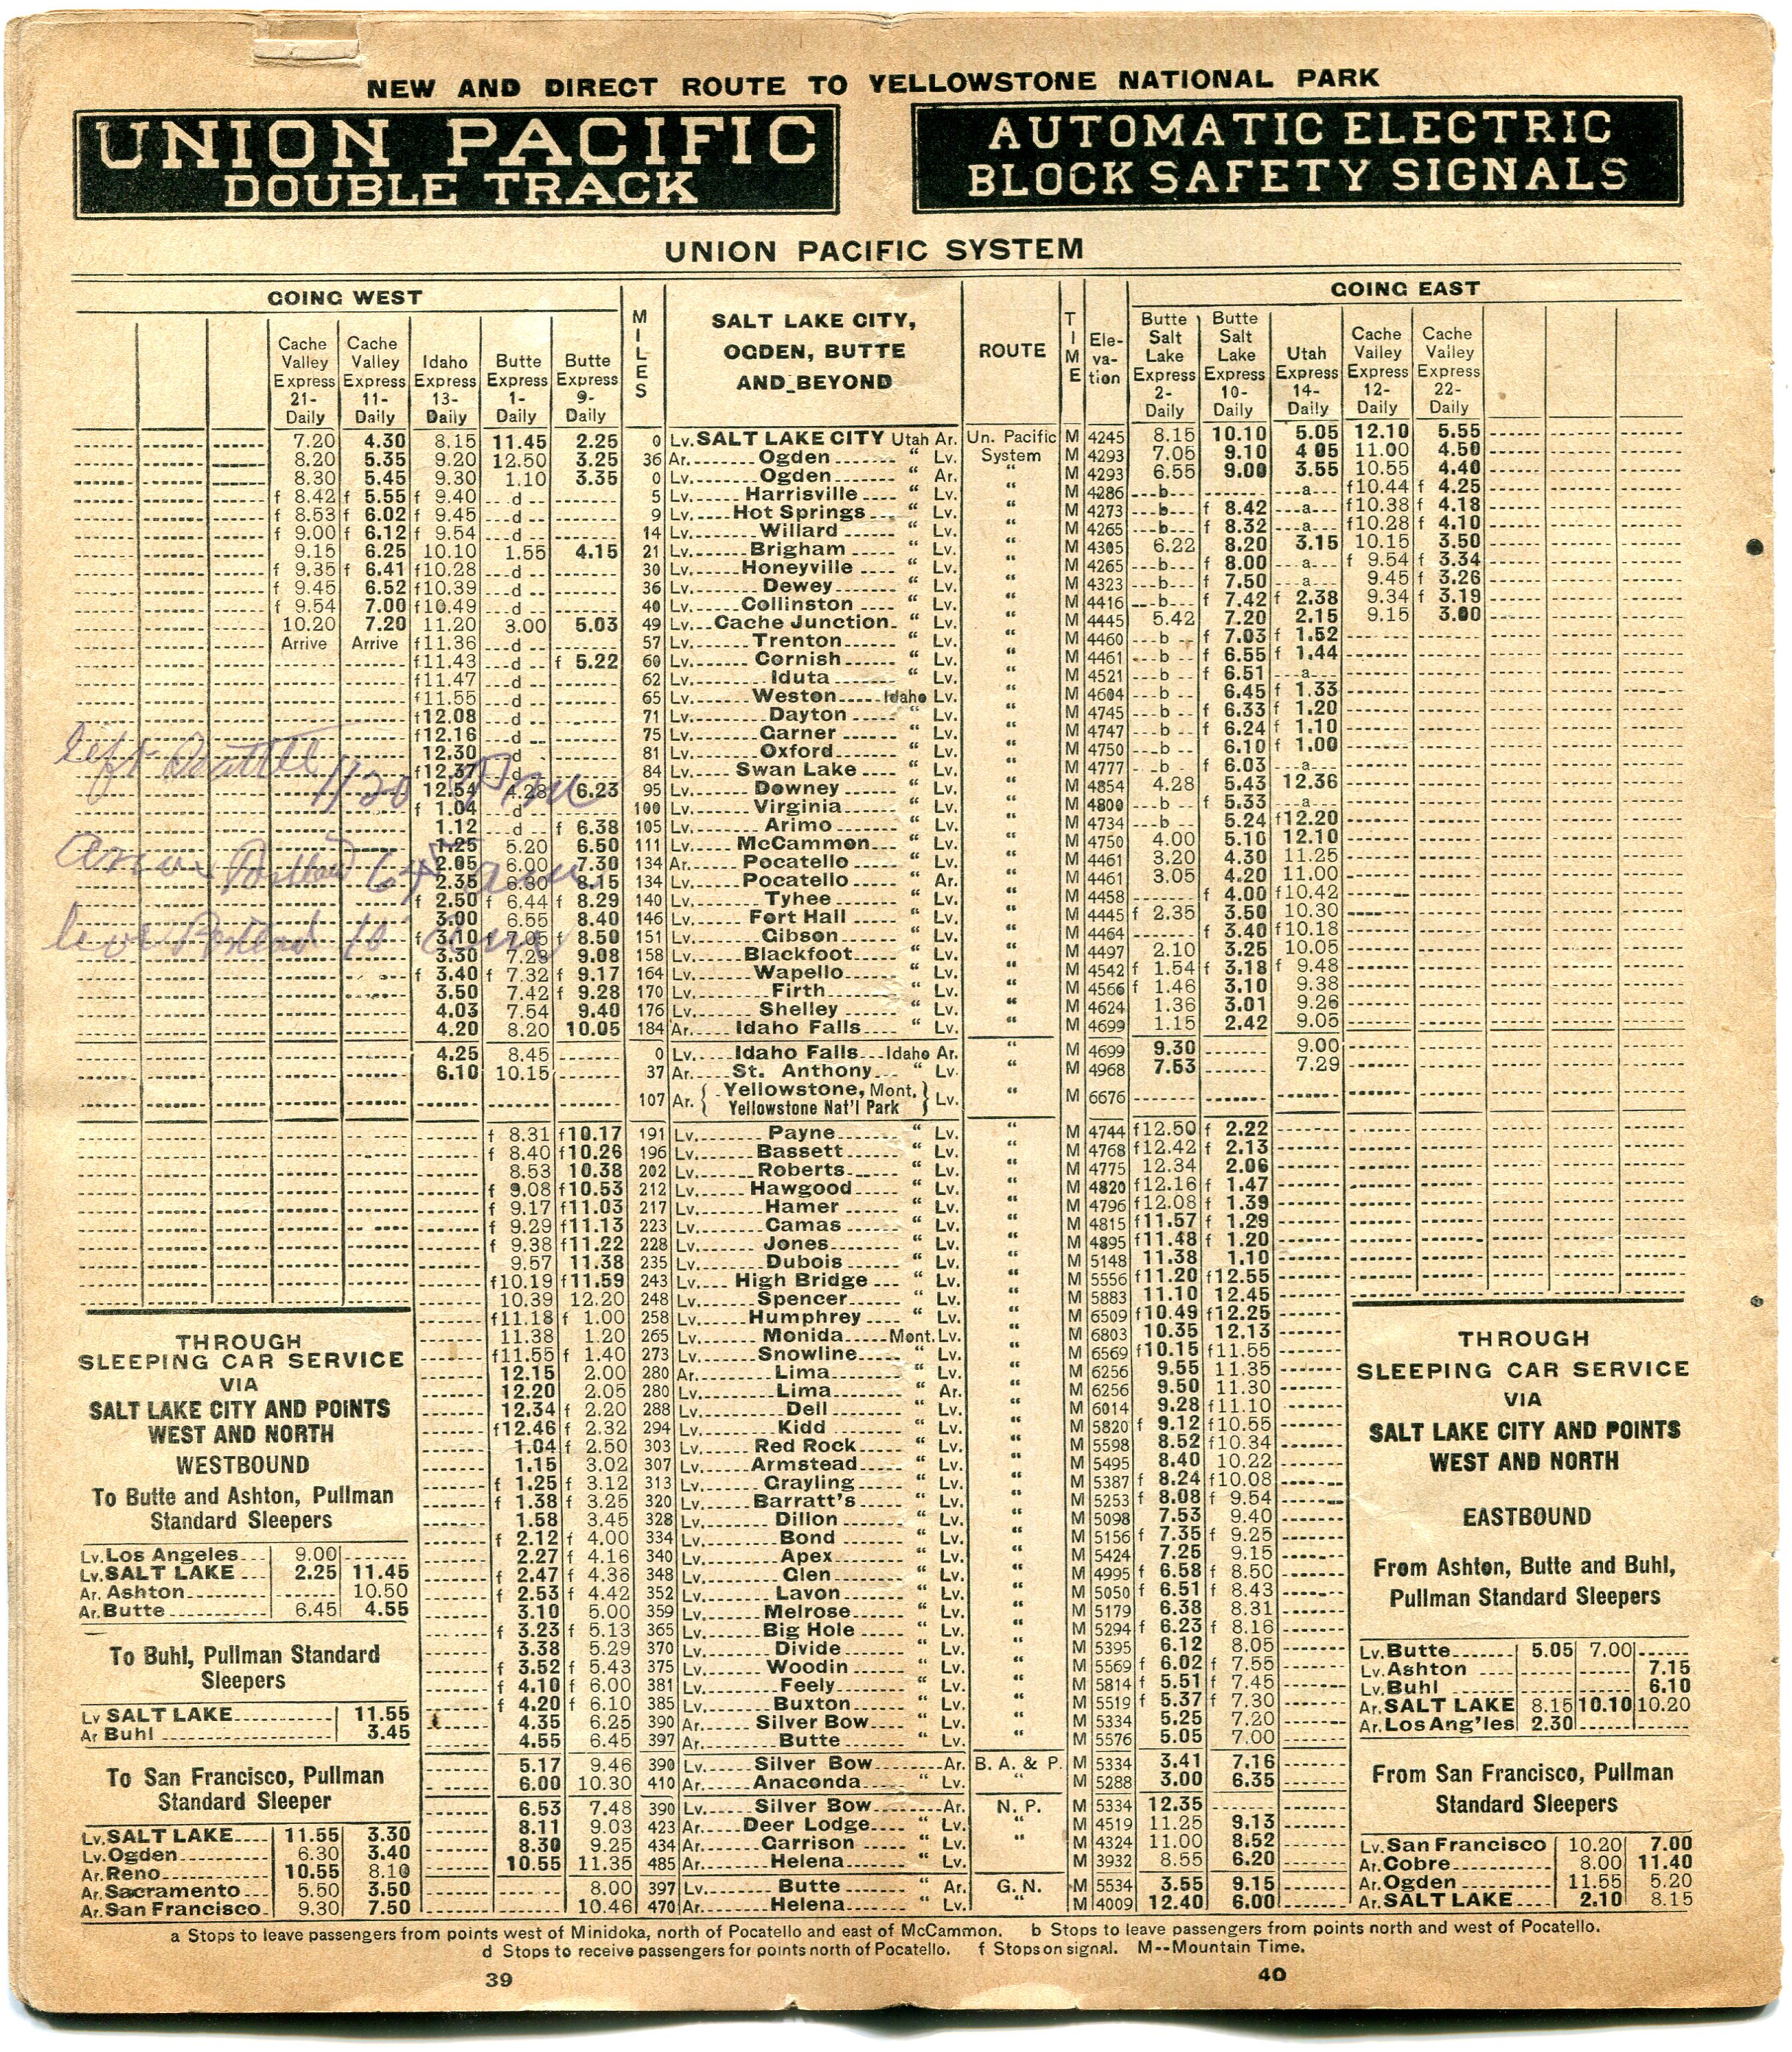 NEW AND DIRECT ROUTE TO YELLOWSTONE NATIONAL PARK
UNION PACIFIC
DOUBLE TRACK
AUTOMATIC ELECTRIC
BLOCK SAFETY SIGNALS
UNION PACIFIC SYSTEM
GOING WEST
Cache Valley Express 21- Daily
Cache Valley Express 11- Daily
Idaho Express 13- Daily
Butte Express 1- Daily
Butte Express 9- Daily
MILES
SALT LAKE CITY,
OGDEN, BUTTE
AND BEYOND
ROUTE
TIME
Ele-va-tion
GOING EAST
Butte Salt Lake Express 2- Daily
Butte Salt Lake Express 10- Daily
Utah Express 14- Daily
Cache Valley Express 12- Daily
Cache Valley Express 22- Daily
7.20 4.30 8.15 11.45 2.25 0 Lv. SALT LAKE CITY Utah Ar. Un. Pacific M 4245 8.15 10.10 5.05 12.10 5.55
8.20 5.35 9.20 12.50 3.25 36 Ar. Ogden “ Lv. System M 4293 7.05 9.10 4 05 11.00 4.50
8.30 5.45 9.30 1.10 3.35 0 Lv. Ogden “ Ar. “ M 4293 6.55 9.00 3.55 10.55 4.40
f 8.42 f 5.55 f 9.40 d 5 Lv. Harrisville “ Lv. “ M 4286 b a f10.44 f 4.25
f 8.53 f 6.02 f 9.45 d 9 Lv. Hot Springs “ Lv. “ M 4273 b f 8.42 a f10.38 f 4.18
f 9.00 f 6.12 f 9.54 d 14 Lv. Willard “ Lv. “ M 4265 b f 8.32 a f10.28 f 4.10
9.15 6.25 10.10 1.55 4.15 21 Lv. Brigham “ Lv. “ M 4305 6.22 8.20 3.15 10.15 3.50
f 9.35 f 6.41 f10.28 d 30 Lv. Honeyville “ Lv. “ M 4265 b f 8.00 a f 9.54 f 3.34
f 9.45 6.52 f10.39 d 36 Lv. Dewey “ Lv. “ M 4323 b f 7.50 a 9.45 f 3.26
f 9.54 7.00 f10.49 d 40 Lv. Collinston “ Lv. “ M 4416 b f 7.42 f 2.38 9.34 f 3.19
10.20 7.20 11.20 3.00 5.03 49 Lv. Cache Junction “ Lv. “ M 4445 5.42 7.20 2.15 9.15 3.00
Arrive Arrive f11.36 d 57 Lv. Trenton “ Lv. “ M 4460 b f 7.03 f 1.52
f11.43 d f 5.22 60 Lv. Cornish “ Lv. “ M 4461 b f 6.55 f 1.44
f11.47 d 62 Lv. Iduta “ Lv. “ M 4521 b f 6.51 a
f11.55 d 65 Lv. Weston Idaho Lv. “ M 4604 b 6.45 f 1.33
f12.08 d 71 Lv. Dayton “ Lv. “ M 4745 b f 6.33 f 1.20
f12.16 d 75 Lv. Garner “ Lv. “ M 4747 b f 6.24 f 1.10
12.30 d 81 Lv. Oxford “ Lv. “ M 4750 b 6.10 f 1.00
f12.37 d 84 Lv. Swan Lake “ Lv. “ M 4777 b f 6.03 a
12.54 4.28 6.23 95 Lv. Downey “ Lv. “ M 4854 4.28 5.43 12.36
f 1.04 d 100 Lv. Virginia “ Lv. “ M 4800 b f 5.33 a
1.12 d f 6.38 105 Lv. Arimo “ Lv. “ M 4734 b 5.24 f12.20
1.25 5.20 6.50 111 Lv. McCammon “ Lv. “ M 4750 4.00 5.10 12.10
2.05 6.00 7.30 134 Ar. Pocatello “ Lv. “ M 4461 3.20 4.30 11.25
2.35 6.30 8.15 134 Lv. Pocatello “ Ar. “ M 4461 3.05 4.20 11.00
f 2.50 f 6.44 f 8.29 140 Lv. Tyhee “ Lv. “ M 4458 f 4.00 f10.42
3.00 6.55 8.40 146 Lv. Fort Hall “ Lv. “ M 4445 f 2.35 3.50 10.30
f 3.10 7.05 f 8.50 151 Lv. Gibson “ Lv. “ M 4464 f 3.40 f10.18
3.30 7.23 9.08 158 Lv. Blackfoot “ Lv. “ M 4497 2.10 3.25 10.05
f 3.40 f 7.32 f 9.17 164 Lv. Wapello “ Lv. “ M 4542 f 1.54 f 3.18 f 9.48
3.50 7.42 f 9.28 170 Lv. Firth “ Lv. “ M 4566 f 1.46 3.10 9.38
4.03 7.54 9.40 176 Lv. Shelley “ Lv. “ M 4624 1.36 3.01 9.26
4.20 8.20 10.05 184 Ar. Idaho Falls “ Lv. “ M 4699 1.15 2.42 9.05
4.25 8.45 0 Lv. Idaho Falls Idaho Ar. “ M 4699 9.30 9.00
6.10 10.15 37 Ar. St. Anthony “ Lv. “ M 4968 7.53 7.29
107 Ar. { Yellowstone, Mont. Yellowstone Nat'l Park } Lv. “ M 6676
f 8.31 f10.17 191 Lv. Payne “ Lv. “ M 4744 f12.50 f 2.22
f 8.40 f10.26 196 Lv. Bassett “ Lv. “ M 4768 f12.42 f 2.13
8.53 10.38 202 Lv. Roberts “ Lv. “ M 4775 12.34 2.06
f 9.08 f10.53 212 Lv. Hawgood “ Lv. “ M 4820 f12.16 f 1.47
f 9.17 f11.03 217 Lv. Hamer “ Lv. “ M 4796 f12.08 f 1.39
f 9.29 f11.13 223 Lv. Camas “ Lv. “ M 4815 f11.57 f 1.29
f 9.38 f11.22 228 Lv. Jones “ Lv. “ M 4895 f11.48 f 1.20
9.57 11.38 235 Lv. Dubois “ Lv. “ M 5148 11.38 1.10
f10.19 f11.59 243 Lv. High Bridge “ Lv. “ M 5556 f11.20 f12.55
10.39 12.20 248 Lv. Spencer “ Lv. “ M 5883 11.10 12.45
f11.18 f 1.00 258 Lv. Humphrey “ Lv. “ M 6509 f10.49 f12.25
11.38 1.20 265 Lv. Monida Mont. Lv. “ M 6803 10.35 12.13
f11.55 f 1.40 273 Lv. Snowline “ Lv. “ M 6569 f10.15 f11.55
12.15 2.00 280 Ar. Lima “ Lv. “ M 6256 9.55 11.35
12.20 2.05 280 Lv. Lima “ Ar. “ M 6256 9.50 11.30
12.34 f 2.20 288 Lv. Dell “ Lv. “ M 6014 9.28 f11.10
f12.46 f 2.32 294 Lv. Kidd “ Lv. “ M 5820 f 9.12 f10.55
1.04 f 2.50 303 Lv. Red Rock “ Lv. “ M 5598 8.52 f10.34
1.15 3.02 307 Lv. Armstead “ Lv. “ M 5495 8.40 10.22
f 1.25 f 3.12 313 Lv. Grayling “ Lv. “ M 5387 f 8.24 f10.08
f 1.38 f 3.25 320 Lv. Barratt's “ Lv. “ M 5253 f 8.08 f 9.54
1.58 3.45 328 Lv. Dillon “ Lv. “ M 5098 7.53 9.40
f 2.12 f 4.00 334 Lv. Bond “ Lv. “ M 5156 f 7.35 f 9.25
2.27 f 4.16 340 Lv. Apex “ Lv. “ M 5424 7.25 9.15
f 2.47 f 4.36 348 Lv. Glen “ Lv. “ M 4995 f 6.58 f 8.50
f 2.53 f 4.42 352 Lv. Lavon “ Lv. “ M 5050 f 6.51 f 8.43
3.10 5.00 359 Lv. Melrose “ Lv. “ M 5179 6.38 8.31
f 3.23 f 5.13 365 Lv. Big Hole “ Lv. “ M 5294 f 6.23 f 8.16
3.38 5.29 370 Lv. Divide “ Lv. “ M 5395 6.12 8.05
f 3.52 f 5.43 375 Lv. Woodin “ Lv. “ M 5569 f 6.02 f 7.55
f 4.10 f 6.00 381 Lv. Feely “ Lv. “ M 5814 f 5.51 f 7.45
f 4.20 f 6.10 385 Lv. Buxton “ Lv. “ M 5519 f 5.37 f 7.30
4.35 6.25 390 Ar. Silver Bow “ Lv. “ M 5334 5.25 7.20
4.55 6.45 397 Ar. Butte “ Lv. “ M 5576 5.05 7.00
5.17 9.46 390 Lv. Silver Bow Ar. B. A. & P. M 5334 3.41 7.16
6.00 10.30 410 Ar. Anaconda “ Lv. “ M 5288 3.00 6.35
6.53 7.48 390 Lv. Silver Bow Ar. N. P. M 5334 12.35
8.11 9.03 423 Ar. Deer Lodge “ Lv. “ M 4519 11.25 9.13
8.30 9.25 434 Ar. Garrison “ Lv. “ M 4324 11.00 8.52
10.55 11.35 485 Ar. Helena “ Lv. M 3932 8.55 6.20
8.00 397 Lv. Butte “ Ar. G. N. M 5534 3.55 9.15
10.46 470 Ar. Helena “ Lv. “ M 4009 12.40 6.00
left Seattle 1120 Pm
Portland 6
Portland 10
THROUGH
SLEEPING CAR SERVICE
VIA
SALT LAKE CITY AND POINTS
WEST AND NORTH
WESTBOUND
To Butte and Ashton, Pullman
Standard Sleepers
Lv. Los Angeles 9.00
Lv. SALT LAKE 2.25 11.45
Ar. Ashton 10.50
Ar. Butte 6.45 4.55
To Buhl, Pullman Standard
Sleepers
Lv SALT LAKE 11.55
Ar Buhl 3.45
To San Francisco, Pullman
Standard Sleeper
Lv. SALT LAKE 11.55 3.30
Lv. Ogden 6.30 3.40
Ar. Reno 10.55 8.10
Ar. Sacramento 5.50 3.50
Ar. San Francisco 9.30 7.50
THROUGH
SLEEPING CAR SERVICE
VIA
SALT LAKE CITY AND POINTS
WEST AND NORTH
EASTBOUND
From Ashton, Butte and Buhl,
Pullman Standard Sleepers
Lv. Butte 5.05 7.00
Lv. Ashton 7.15
Lv. Buhl 6.10
Ar. SALT LAKE 8.15 10.10 10.20
Ar. Los Ang'les 2.30
From San Francisco, Pullman
Standard Sleepers
Lv. San Francisco 10.20 7.00
Ar. Cobre 8.00 11.40
Ar. Ogden 11.55 5.20
Ar. SALT LAKE 2.10 8.15
a Stops to leave passengers from points west of Minidoka, north of Pocatello and east of McCammon. b Stops to leave passengers from points north and west of Pocatello.
d Stops to receive passengers for points north of Pocatello. f Stops on signal. M--Mountain Time.
39
40